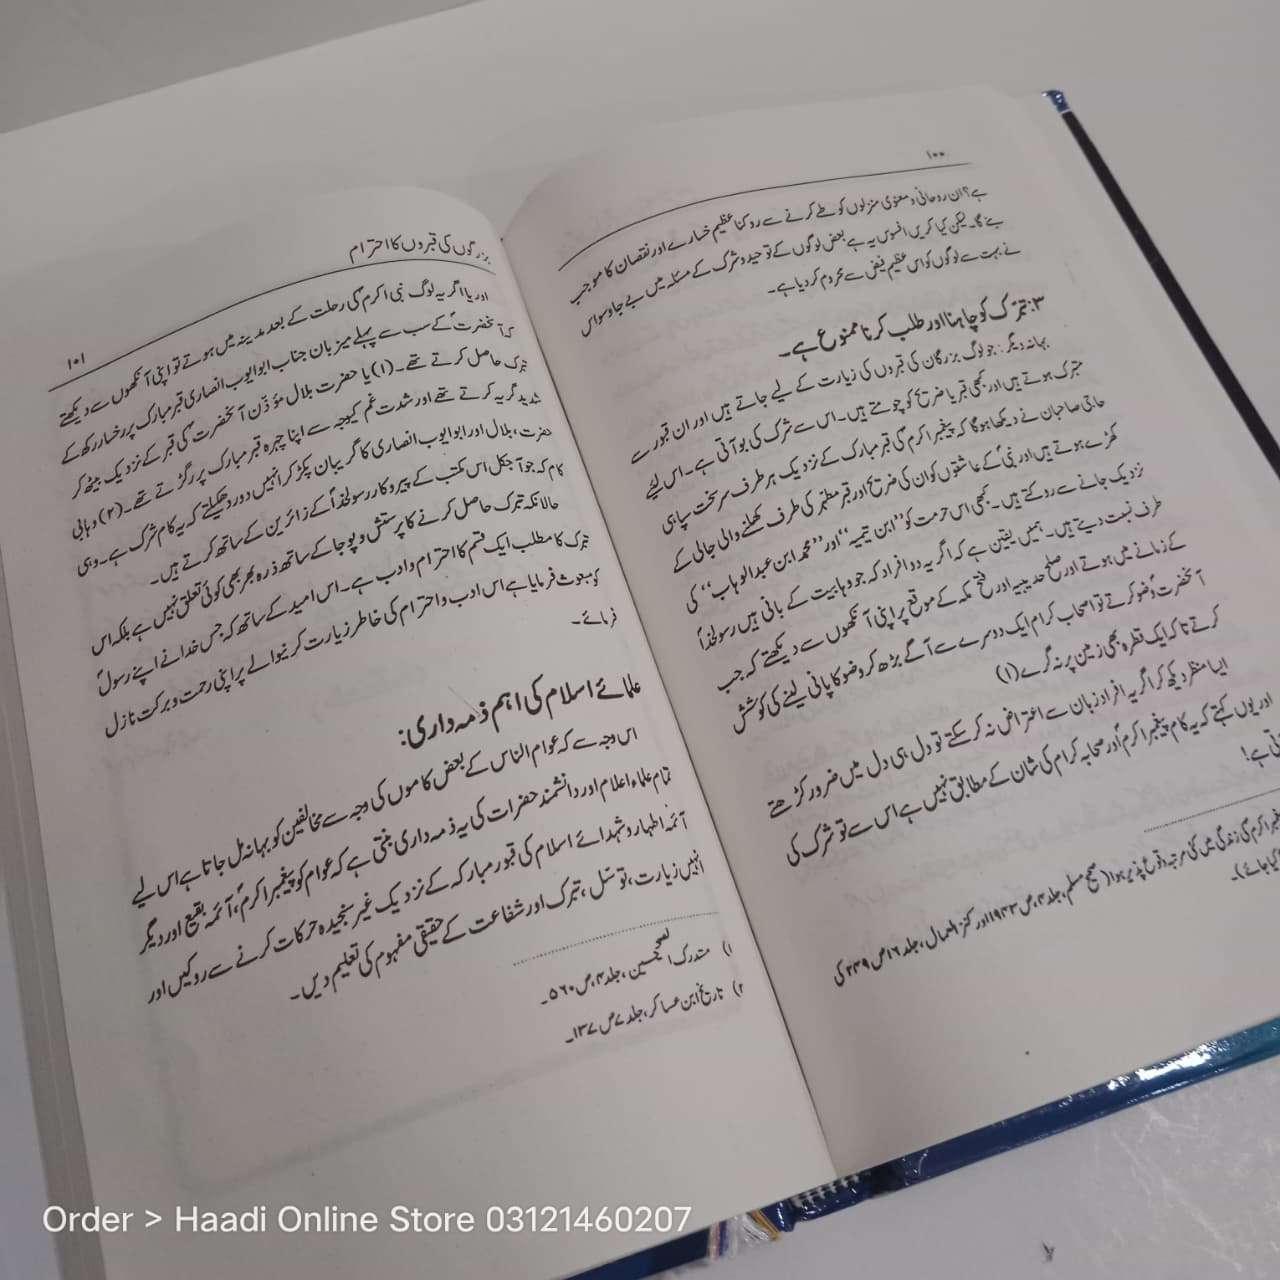 ۱۰۰
ہے؟ ان روحانی و معنوی منزلوں کو طے کرنے سے روکنا عظیم خسارے اور نقصان کا موجب
بنے گا۔ لیکن کیا کریں افسوس یہ ہے بعض لوگوں کے توحید و شرک کے مسئلہ میں بے جا وسواس
نے بہت سے لوگوں کو اس عظیم فیض سے محروم کر دیا ہے۔
۳: تبرک کو چاہنا اور طلب کرنا ممنوع ہے۔
بہانہ دیگر: جو لوگ بزرگان کی قبروں کی زیارت کے لیے جاتے ہیں اور ان قبور سے
متبرک ہوتے ہیں اور کبھی قبر یا ضریح کو چومتے ہیں۔ اس سے شرک کی بو آتی ہے۔ اس لیئے
حاجی صاحبان نے دیکھا ہوگا کہ پیغمبر اکرمؐ کی قبر مبارک کے نزدیک ہر طرف سر سخت سپاہی
کھڑے ہوتے ہیں اور نبیؐ کے عاشقوں کو ان کی ضریح اور قبر مطہر کی طرف کھلنے والی جالی کے
نزدیک جانے سے روکتے ہیں۔ کبھی اس حرمت کو ”ابن تیمیہ“ اور ”محمد ابن عبد الوہاب“ کی
طرف نسبت دیتے ہیں۔ ہمیں یقین ہے کہ اگر یہ دو افراد کہ جو وہابیت کے بانی ہیں رسولخداؐ
کے زمانے میں ہوتے اور صلح حدیبیہ اور فتح مکہ کے موقع پر اپنی آنکھوں سے دیکھتے کہ جب
آنحضرتؐ وضو کرتے تو اصحاب کرام ایک دوسرے سے آگے بڑھ کر وضو کا پانی لینے کی کوشش
کرتے تا کہ ایک قطرہ بھی زمین پر نہ گرے (۱)
ایسا منظر دیکھ کر اگر یہ افراد زبان سے اعتراض نہ کر سکتے تو دل ہی دل میں ضرور کڑھتے
اور یوں کہتے کہ یہ کام پیغمبر اکرمؐ اور صحابہ کرام کی شان کے مطابق نہیں ہے اس سے تو شرک کی
ہے!
اکرمؐ کی زندگی میں کئی مرتبہ وقوع پذیر ہوا (صحیح مسلم، جلد ۴، ص ۱۹۴۳ اور کنز العمال، جلد ۱۶ ص ۲۴۹ کی
کیا جائے)۔
بزرگوں کی قبروں کا احترام
۱۰۱
اور یا اگر یہ لوگ نبی اکرمؐ کی رحلت کے بعد مدینہ میں ہوتے تو اپنی آنکھوں سے دیکھتے
کہ آنحضرتؐ کے سب سے پہلے میزبان جناب ابو ایوب انصاری قبر مبارک پر رخسار رکھ کے
تبرک حاصل کرتے تھے۔ (۱) یا حضرت بلال مؤذن آنحضرتؐ کی قبر کے نزدیک بیٹھ کر
شدید گریہ کرتے تھے اور شدت غم کیوجہ سے اپنا چہرہ قبر مبارک پر رگڑتے تھے۔ (۲) وہابی
حضرت بلال اور ابو ایوب انصاری کا گریبان پکڑ کر انہیں دور دھکیلتے کہ یہ کام شرک ہے۔ وہی
کام کہ جو آجکل اس مکتب کے پیروکار رسولخداؐ کے زائرین کے ساتھ کرتے ہیں۔
حالانکہ تبرک حاصل کرنے کا پرستش و پوجا کے ساتھ ذرہ بھر بھی کوئی تعلق نہیں ہے بلکہ اس
تبرک کا مطلب ایک قسم کا احترام و ادب ہے۔ اس امید کے ساتھ کہ جس خدا نے اپنے رسولؐ
کو مبعوث فرمایا ہے اس ادب و احترام کی خاطر زیارت کرنیوالے پر اپنی رحمت و برکت نازل
فرمائے۔
علمائے اسلام کی اہم ذمہ داری:
اس وجہ سے کہ عوام الناس کے بعض کاموں کی وجہ سے مخالفین کو بہانہ مل جاتا ہے اس لیے
تمام علماء اعلام اور دانشمند حضرات کی یہ ذمہ داری بنتی ہے کہ عوام کو پیغمبر اکرمؐ، آئمہ بقیع اور دیگر
آئمہ اطہار و شہدائے اسلام کی قبور مبارکہ کے نزدیک غیر سنجیدہ حرکات کرنے سے روکیں اور
انہیں زیارت، توسّل، تبرک اور شفاعت کے حقیقی مفہوم کی تعلیم دیں۔
۱) مستدرک الصحیحین، جلد ۴، ص ۵۶۰۔
۲) تاریخ ابن عساکر، جلد ۷ ص ۱۳۷۔
Order > Haadi Online Store 03121460207